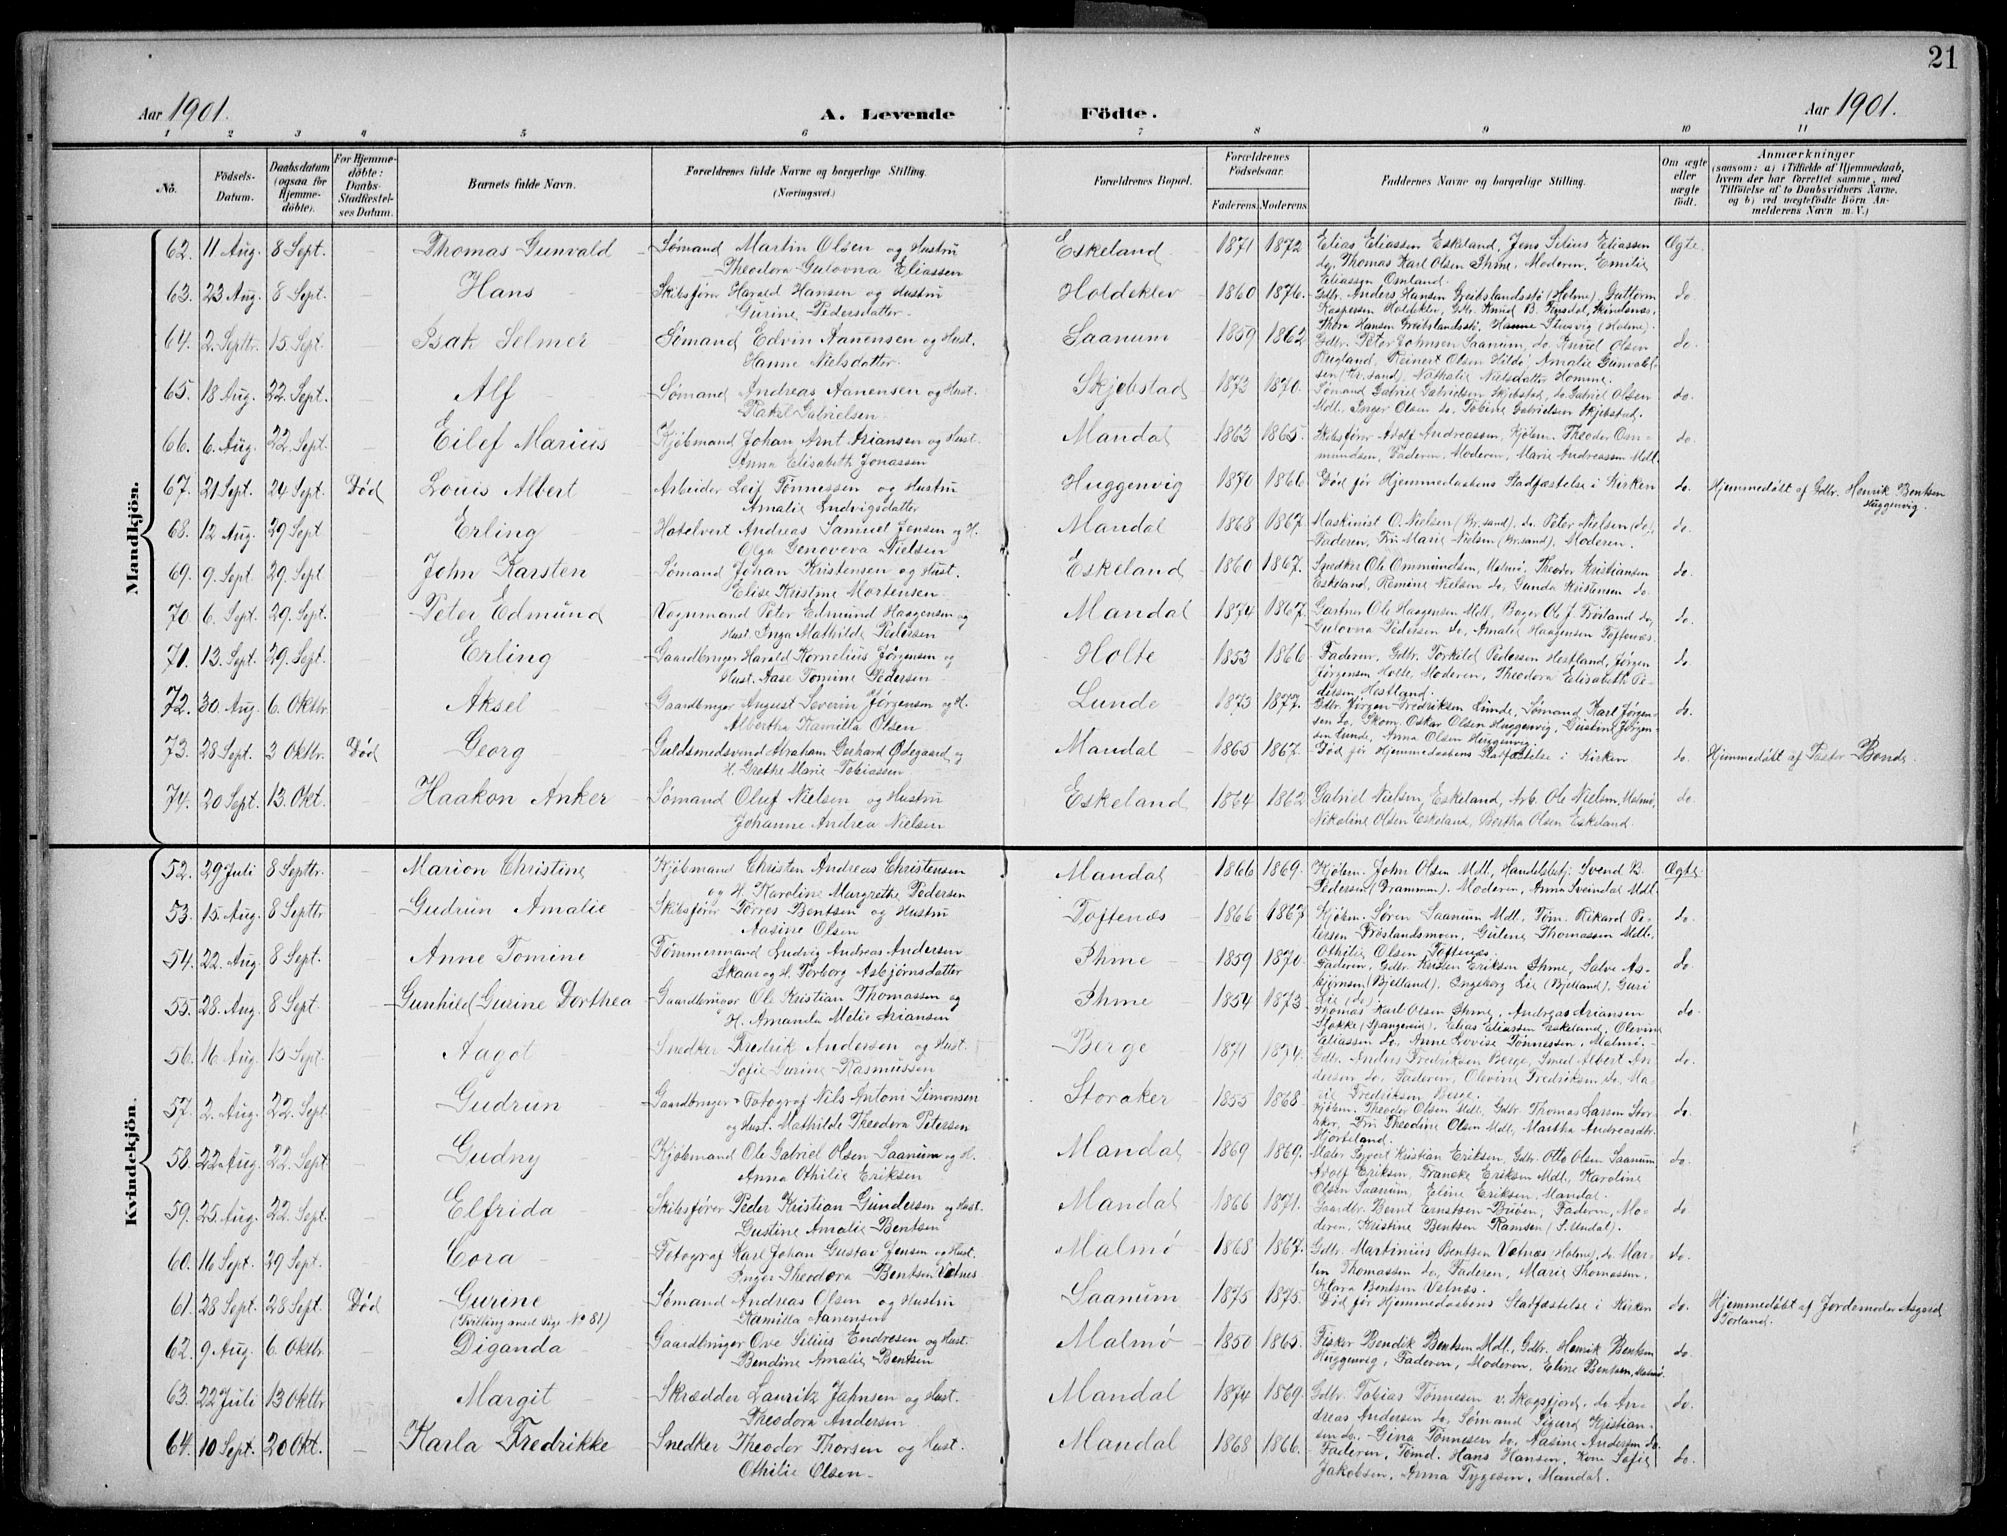 21
Aar 1901.
A. Levende Födte.
Aar 1901.
1 2 3 4 5 6 7 8 9 10 11
No.
Födsels-Datum.
Daabsdatum (ogsaa for Hjemme-döbte).
For Hjemme-döbte: Daabs-Stadfæstel-ses Datum.
Barnets fulde Navn.
Forældrenes fulde Navne og borgerlige Stilling. (Næringsvei.)
Forældrenes Bopæl.
Forældrenes Födselsaar.
Faderens. Moderens.
Faddernes Navne og borgerlige Stilling.
Om ægte eller uægte födt.
Anmærkninger
(saasom: a) i Tilfælde af Hjemmedaab, hvem der har forrettet samme, med Tilföielse af to Daabsvidners Navne. og b) ved uægtefödte Börn An-melderens Navn m. V.)
Mandkjön.
62. 11 Aug. 8 Sept. Thomas Gunvald Sømand Martin Olsen og Hustru Eskeland 1871 1872 Elias Eliassen Eskeland, Jens Selius Eliassen Ægte
Theodora Gulovna Eliassen do, Thomas Karl Olsen Ihme, Moderen, Emilie
Eliassen Omland.
63. 23 Aug. 8 Sept. Hans Skibsfører Harald Hansen og Hustru Holdeklev 1860 1876. Gdbr. Anders Hansen Greibslandsstø (Holme), Guttorm do.
Gurine Pedersdatter Kaspersen Holdeklev, Gbr. Knud B. Skindsnes,
Thora Hansen Greibslandsstø, Hanne (Holme).
64. 2. Septbr. 15 Sept. Isak Selmer Sømand Edvin Aanensen og Hust. Saanum 1859 1862 Gdbr. Peter Johnsen Saanum, do. Knud Olsen do.
Hanne Nielsdatter Rugland, Reinert Olsen Hilde, Amalie Gunvald-
sen (Kr.sand), Nathalie Nielsdatter Homme.
65. 18 Aug. 22. Sept. Alf Sømand Andreas Aanensen og Hust. Skjebstad 1873 1870. Sømand Gabriel Gabrielsen Skjebstad, do. Gabriel Olsen do.
Rakel Gabrielsen. Mdl., Inger Olsen do, Tobine Gabrielsen Skjebstad.
66. 6. Aug. 22. Sept. Eilef Marius Kjøbmand Johan Arnt Ariansen og Hust. Mandal 1863 1865. Skibsfører Adolf Andreassen, Kjøbm. Theodor Om- do.
Anna Elisabeth Jonassen mundsen, Faderen, Moderen, Marie Andreassen Mdl.
67. 21 Sept. 24 Sept. Død Louis Albert Arbeider Leif Tønnessen og Hustru Huggenvig 1870 1866 Død før Hjemmedaabens Stadfæstelse i Kirken do. Hjemmedøbt af Gdbr. Henrik Bentsen
Amalie Endvigsdatter Huggenvig.
68. 12 Aug. 29 Sept Erling Hotelvert Andreas Samuel Jensen og H. Mandal 1868 1867. Maskinist O. Nielsen (Kr.sand), do. Peter Nielsen (do), do.
Olga Genoveva Nielsen Faderen, Fru Marie Nielsen (Kr.sand), Moderen.
69. 9. Sept. 29. Sept John Karsten Sømand Johan Kristensen og Hust. Eskeland 1860 1867. Snedker Ole Ommundsen, Malmø, Theodor Kristiansen do.
Elise Kristine Mortensen Eskeland, Remine Nielsen do, Gunda Kristensen do.
70 6. Sept. 29. Sept. Peter Edmund Vognmand Peter Edmund Haagensen og Mandal 1874 1867. Gartner Ole Haagensen Mdl, Bager Ole J. Frøsland do, do.
Hust. Inga Mathilde Pedersen Gulovna Pedersen do, Amalie Haagensen Toftenæs.
71. 13. Sept. 29. Sept. Erling Gaardbruger Harald Kornelius Jørgensen og Holte 1853 1866. Faderen, Gdbr. Torkild Pedersen Hestland, Jørgen do.
Hust. Aase Tomine Pedersen Jørgensen Holte, Moderen, Theodora Elisabeth Pe-
dersen Hestland.
72. 30. Aug. 6. Oktbr. Aksel Gaardbruger August Severin Jørgensen og H. Lunde 1873 1877. Gdbr. Jørgen Fredriksen Lunde, Sømand Karl Jørgen- do.
Albertha Kamilla Olsen sen do. Skom. Oskar Olsen Huggenvig, Gustine Jørgen-
sen Lunde, Anna Olsen Huggenvig.
73. 28 Sept. 3 Oktbr. Død Georg Guldsmedsvend Abraham Gerhard Ødegaard og Mandal 1865 1867. Død før Hjemmedaabens Stadfæstelse i Kirken do. Hjemmedøbt af Pastor Bonde.
H. Grethe Marie Tobiassen
74. 20 Sept. 13. Okt. Haakon Anker Sømand Oluf Nielsen og Hustru Eskeland 1864 1862 Gabriel Nielsen, Eskeland, Arb. Ole Nielsen, Malmø, do.
Johanne Andrea Nielsen Nikoline Olsen Eskeland, Bertha Olsen Eskeland.
Kvindekjön.
52. 29 Juli 8 Septbr. Marion Christine Kjøbmand Christen Andreas Christensen Mandal 1866 1869. Kjøbm. John Olsen Mdl, Handelsbetj. Svend B. Ægte
og H. Karoline Margrethe Pedersen Pedersen (Drammen), Moderen, Anna Sveindal Mdl.
53. 15. Aug. 8 Septbr. Gudrun Amalie Skibsfører Tørres Bentsen og Hustru Toftenæs 1866 1867 Kjøbm. Søren Saanum Mdl, Tøm. Rikard Pe- do.
Aasine Olsen tersen Frøslandsmoen, Gulene Thomassen Mdl.
Othilie Olsen Toftenæs.
54. 22. Aug. 8 Sept. Anne Tomine Tømmermand Ludvig Andreas Andersen Ihme 1859 1870. Faderen, Gdbr. Kersten Eriksen Ihme, Salve As- do.
Skaar og H. Torborg Asbjørnsdatter bjørnsen (Bjelland), Ingeborg Lie (Bjelland), Guri
Lie (do.)
55. 28. Aug. 8 Sept. Gunhild Gurine Dorthea Gaardbruger Ole Kristian Thomassen og Ihme 1854 1873 Thomas Karl Olsen Ihme, Andreas Ariansen do.
H. Amanda Melie Ariansen Stokke (Spangereid), Elias Eliassen Eskeland, Olevine
Eliassen do, Anne Lovise Tønnessen, Malmø.
56. 16 Aug. 15 Sept. Aagot Snedker Fredrik Andersen og Hust. Berge 1871 1874. Gdbr. Anders Fredriksen Berge, Smed Albert An- do.
Sofie Gurine Rasmussen dersen do, Faderen, Olevine Fredriksen do, Ma-
rie Fredriksen Berge.
57. 2. Aug. 22. Sept. Gudrun Gaardbruger Fotograf Nils Antoni Simonsen Storaker 1855 1868 Kjøbm. Theodor Olsen Mdl. Gdbr. Thomas Larsen Stor- do.
og Hust. Mathilde Theodora Petersen aker, Fru Theodine Olsen Mdl, Martha Andreasdtr.
Hjorteland.
58. 22 Aug. 22. Sept Gudny Kjøbmand Ole Gabriel Olsen Saanum og H. Mandal 1869 1869. Maler Sivert Kristian Eriksen, Gdbr. Otto Olsen Saanum do.
Anna Othilie Eriksen Adolf Eriksen, Francke Eriksen Mdl, Karoline
Olsen Saanum, Eline Eriksen, Mandal.
59. 25 Aug. 22. Sept. Elfrida Skibsfører Peder Kristian Gundersen og Hust. Mandal 1866 1871. Gaardbr. Bernt Erntsen Buøen, Faderen, Mo- do
Gustine Amalie Bentsen deren, Kristine Bentsen Ramsen (S. Undal).
60. 16 Sept. 29 Sept. Cora Fotograf Karl Johan Gustav Jensen og Hust. Malmø 1868 1867. Gdbr. Martinius Bentsen Vetnæs (Holme), do. Mar- do.
Inger Theodora Bentsen Vetnes tin Thomassen do, Faderen, Marie Thomassen,
Klara Bentsen Vetnæs.
61. 28 Sept. 28 Sept. Død Gurine Sømand Andreas Olsen og Hustru Saanum 1875 1875. Død før Hjemmedaabens Stadfæstelse i Kirken do. Hjemmedøbt af Jordemoder Asgerd
(Tvilling med Pige No 81) Kamilla Aanensen Torland.
62. 9 Aug. 6 Oktbr. Diganda Gaardbruger Ove Selius Endresen og Hust. Malmø 1850 1865. Fisker Bendik Bentsen Mdl, Gdbr. Henrik Bentsen do.
Bendine Amalie Bentsen Huggenvig, Faderen, Moderen, Eline Bentsen, Malmø.
63. 22 Juli 13 Oktbr Margit Skrædder Lauritz Jahnsen og Hust. Mandal 1874 1869. Gdbr. Tobias Tønnesen v. Skogsfjord, do. An- do.
Theodora Andersen dreas Andersen do, Sømand Sigurd Kristian-
sen do. Gina Tønnesen do, Aasine Andersen do.
64. 10 Sept. 20 Okt. Karla Fredrikke Snedker Theodor Thorsen og Hust. Mandal 1868 1866. Faderen, Tømd. Hans Hansen, Kone Sofie do.
Othilie Olsen Jakobsen, Anna Tygesen, Mandal.